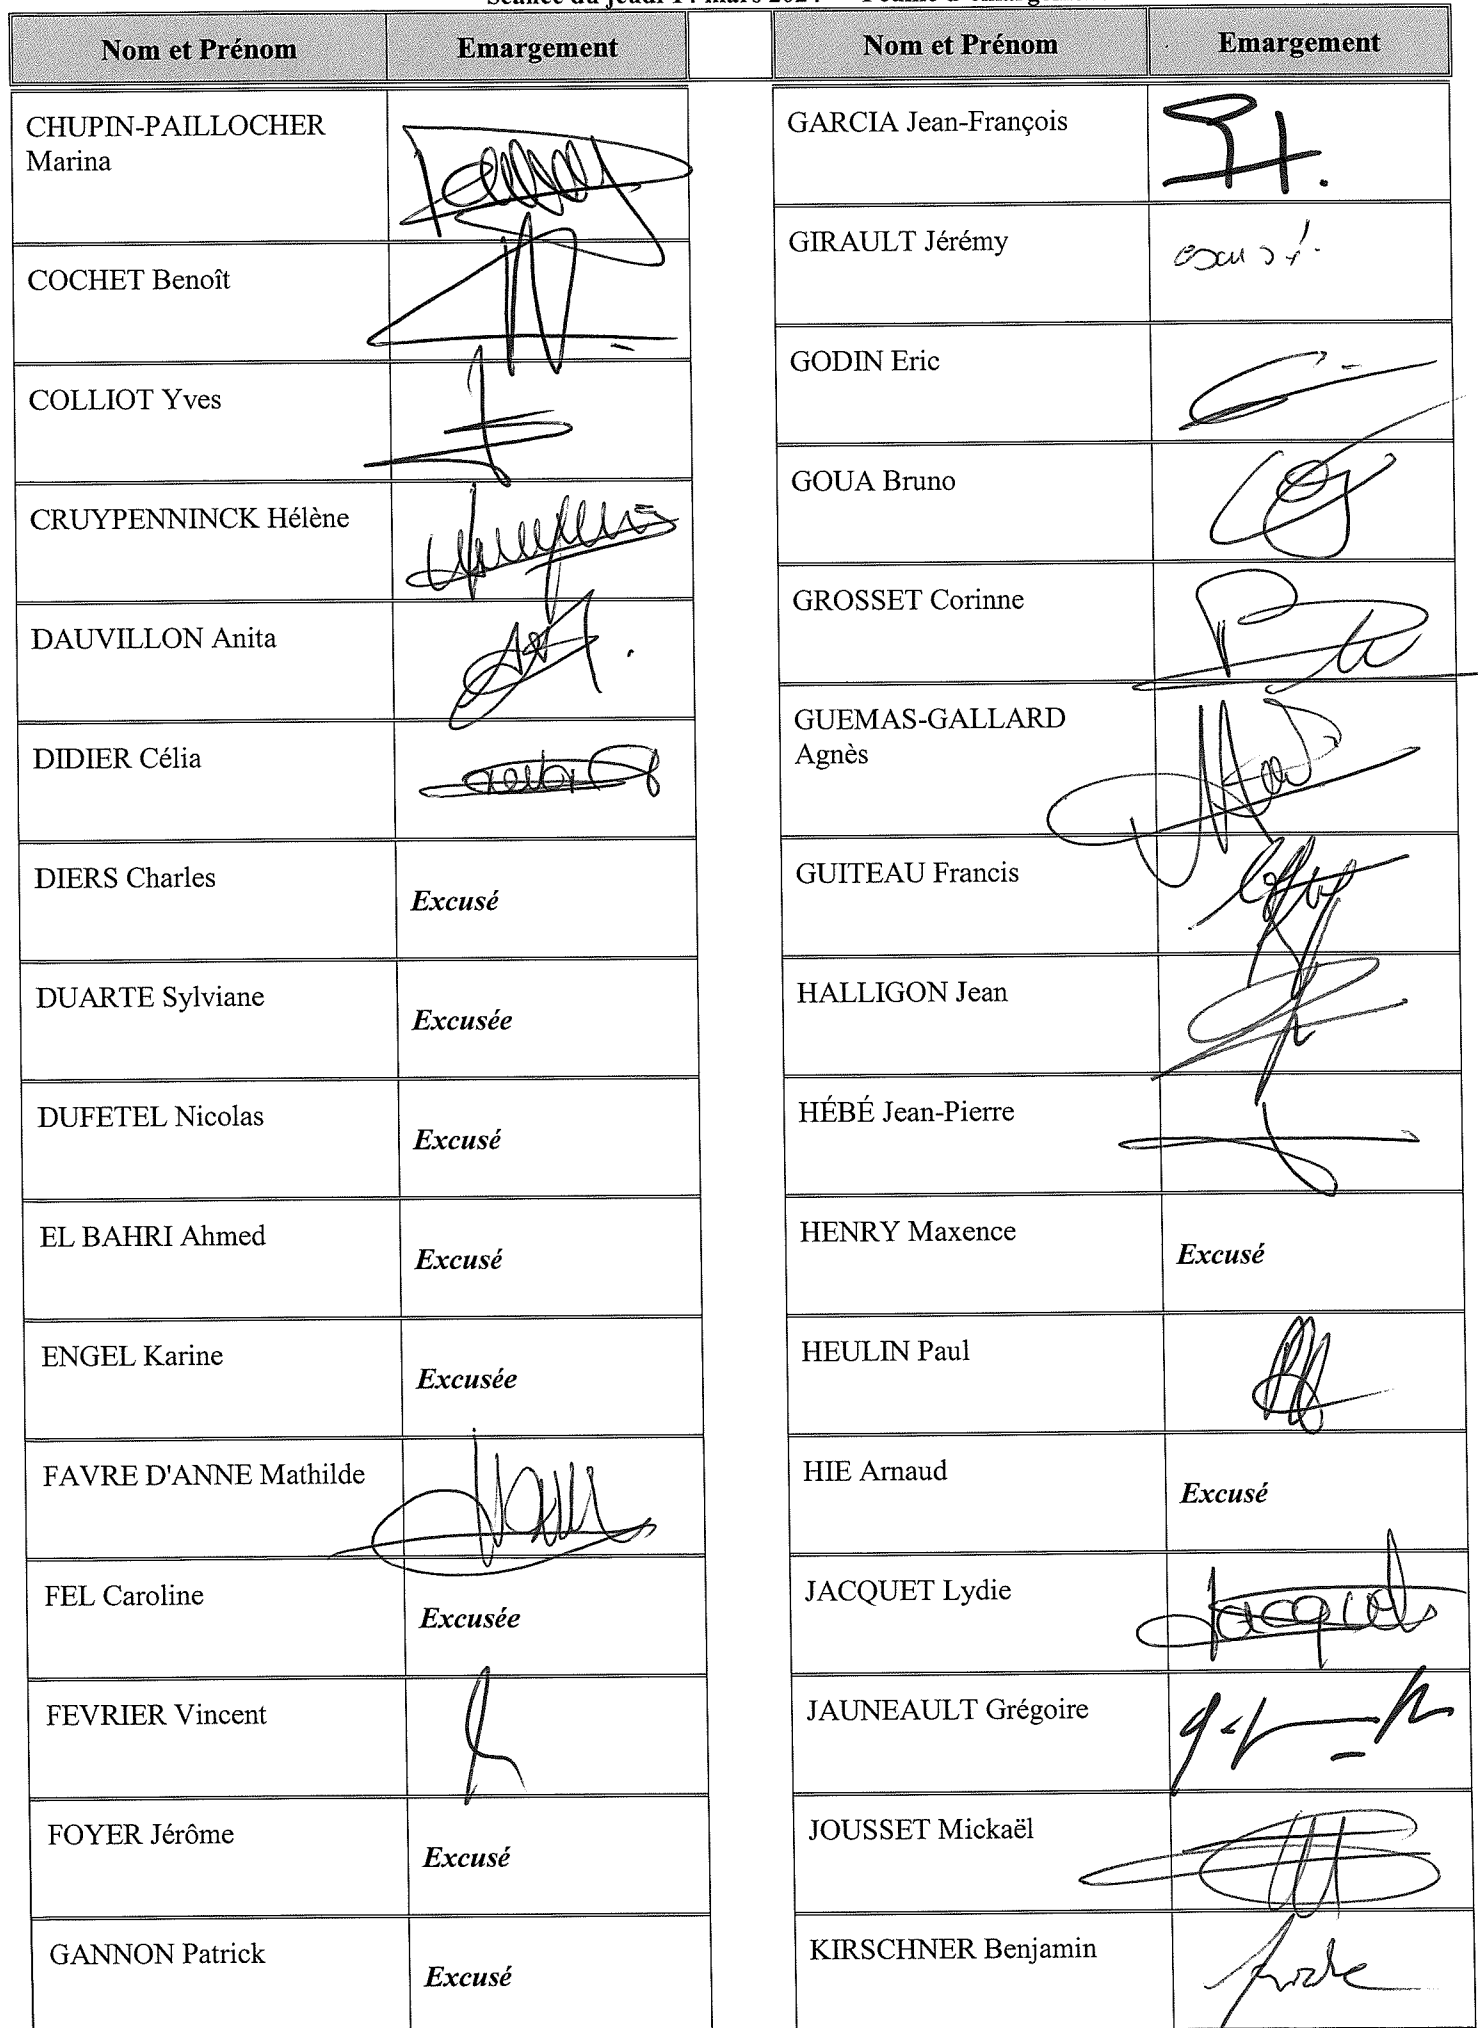 Séance du jeudi 14 mars 2024
Nom et Prénom Emargement
CHUPIN-PAILLOCHER
Marina
COCHET Benoît
COLLIOT Yves
CRUYPENNINCK Hélène
DAUVILLON Anita
DIDIER Célia
DIERS Charles
Excusé
DUARTE Sylviane
Excusée
DUFETEL Nicolas
Excusé
EL BAHRI Ahmed
Excusé
ENGEL Karine
Excusée
FAVRE D'ANNE Mathilde
FEL Caroline
Excusée
FEVRIER Vincent
FOYER Jérôme
Excusé
GANNON Patrick
Excusé
Nom et Prénom Emargement
GARCIA Jean-François
GIRAULT Jérémy
excusé
GODIN Eric
GOUA Bruno
GROSSET Corinne
GUEMAS-GALLARD
Agnès
GUITEAU Francis
HALLIGON Jean
HÉBÉ Jean-Pierre
HENRY Maxence
Excusé
HEULIN Paul
HIE Arnaud
Excusé
JACQUET Lydie
Jacquet
JAUNEAULT Grégoire
JOUSSET Mickaël
KIRSCHNER Benjamin